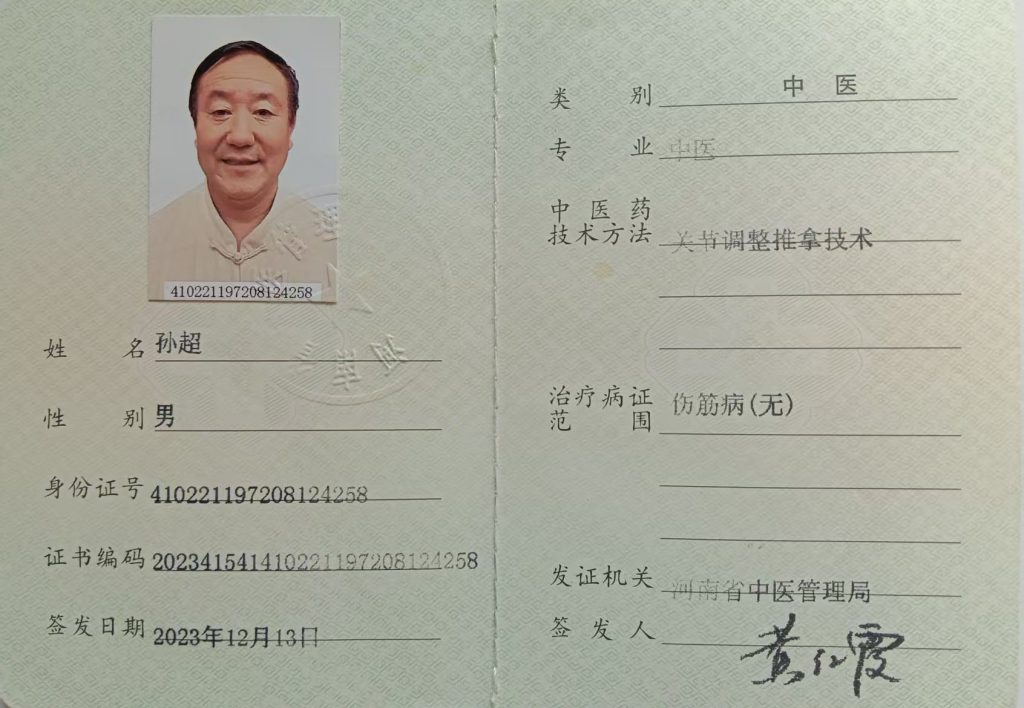 410221197208124258
姓名 孙超
性别 男
身份证号 410221197208124258
证书编码 202341541410221197208124258
签发日期 2023年12月13日
类别 中医
专业 中医
中医药
技术方法 关节调整推拿技术
治疗病证
范围 伤筋病(无)
发证机关 河南省中医管理局
签发人 黄红霞